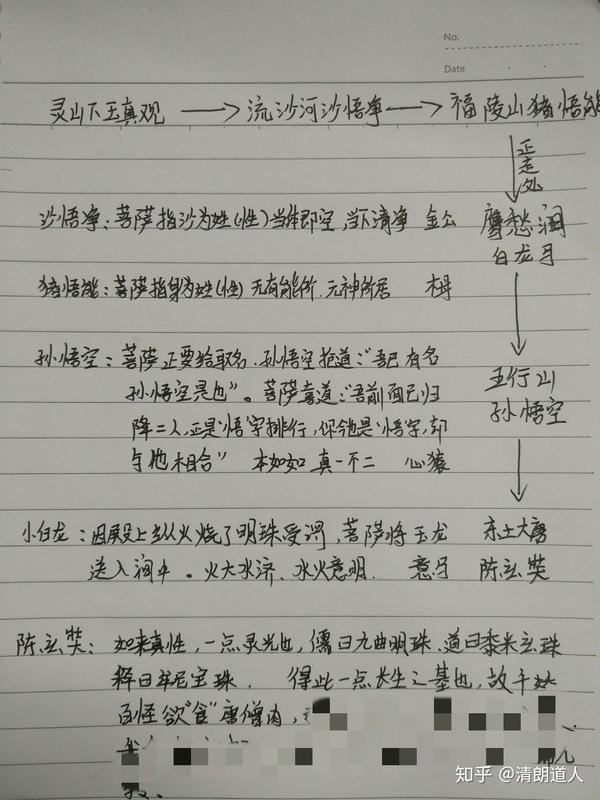 No.
Date
灵山下玉真观 → 流沙河沙悟净 → 福陵山猪悟能
正走处
沙悟净：菩萨指沙为姓(性)当体即空，当下清净 金公 鹰愁涧
白龙马
猪悟能：菩萨指身为姓(性)无有能所，元神所居 木母
孙悟空：菩萨正要给取名，孙悟空抢道："吾已有名 五行山
孙悟空是也"。菩萨喜道："吾前面已归 孙悟空
降二人，正是"悟"字排行，你也是"悟"字，却
与他相合" 本如如 真一不二 心猿
小白龙：因殿上纵火烧了明珠受谓，菩萨将玉龙 东土大唐
送入涧中。火大水济、水火意明. 意马 陈玄奘
陈玄奘：如来真性，一点灵光也，儒曰九曲明珠.道曰黍米玄珠
释曰牟尼宝珠. 得此一点长生之基也，故千妖
百怪欲"食"唐僧肉，
知乎 @清朗道人